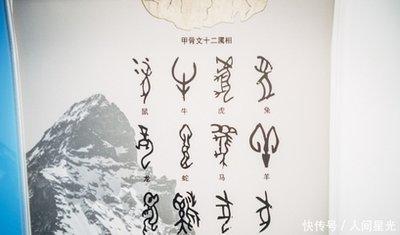 甲骨文十二属相
鼠 牛 虎 兔
龙 蛇 马 羊
快传号／人间星光